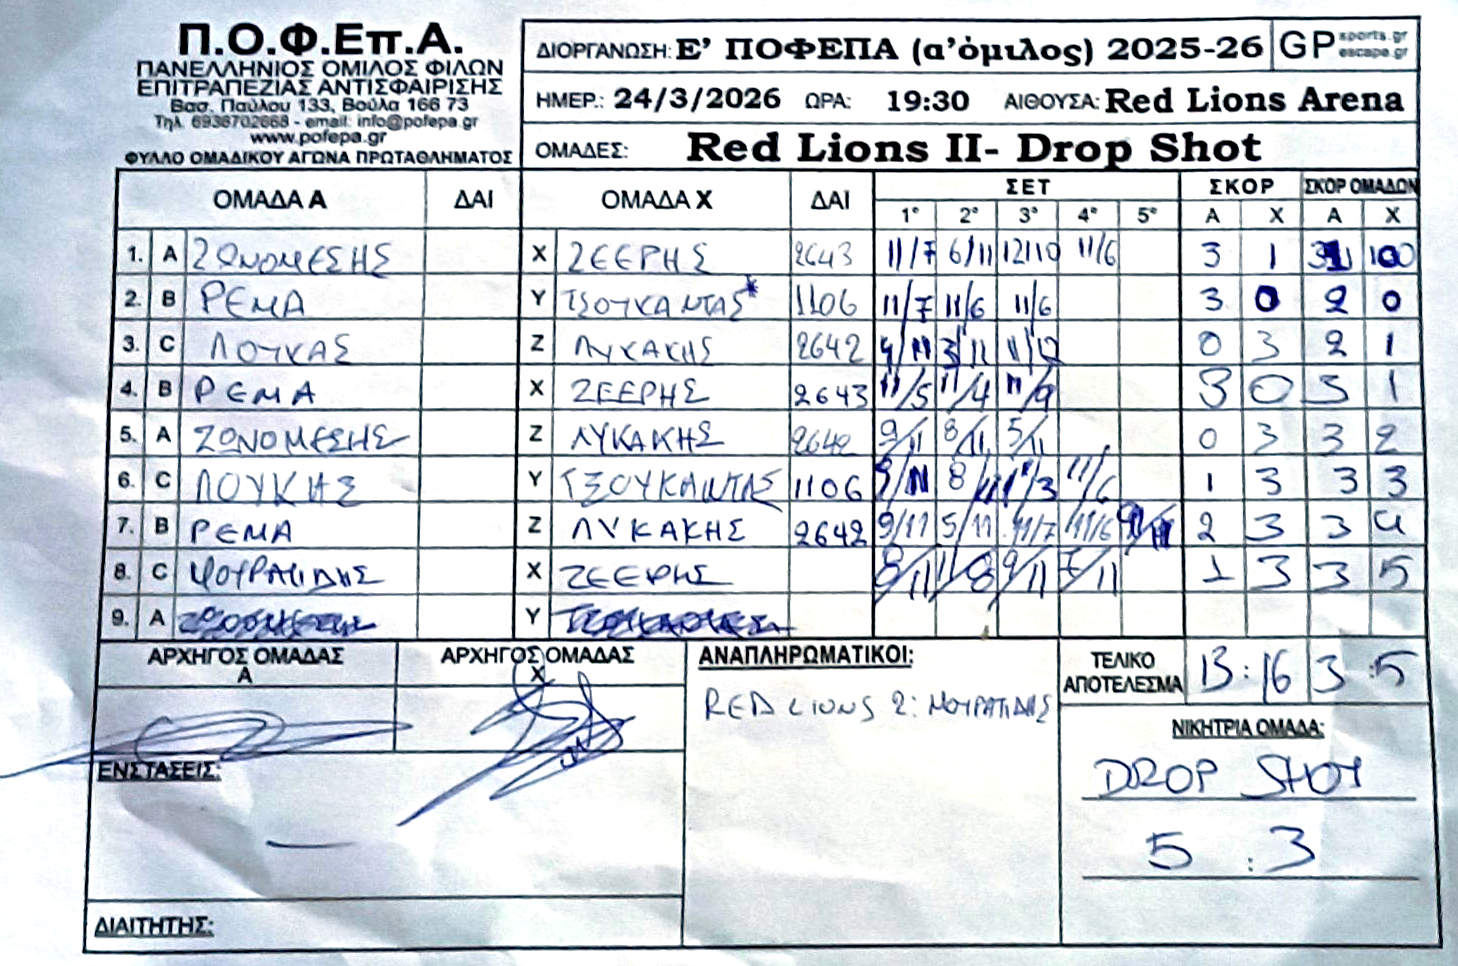 Π.Ο.Φ.Επ.Α.
ΠΑΝΕΛΛΗΝΙΟΣ ΟΜΙΛΟΣ ΦΙΛΩΝ
ΕΠΙΤΡΑΠΕΖΙΑΣ ΑΝΤΙΣΦΑΙΡΙΣΗΣ
Βασ. Παύλου 133, Βούλα 166 73
Τηλ. 6936702668 - email: info@pofepa.gr
www.pofepa.gr
ΦΥΛΛΟ ΟΜΑΔΙΚΟΥ ΑΓΩΝΑ ΠΡΩΤΑΘΛΗΜΑΤΟΣ
ΔΙΟΡΓΑΝΩΣΗ: Ε' ΠΟΦΕΠΑ (α'όμιλος) 2025-26 GP sports.gr escape.gr
ΗΜΕΡ.: 24/3/2026 ΩΡΑ: 19:30 ΑΙΘΟΥΣΑ: Red Lions Arena
ΟΜΑΔΕΣ: Red Lions II- Drop Shot
ΟΜΑΔΑ Α ΔΑΙ ΟΜΑΔΑ Χ ΔΑΙ ΣΕΤ ΣΚΟΡ ΣΚΟΡ ΟΜΑΔΩΝ
1° 2° 3° 4° 5° Α Χ Α Χ
1. A ΖΩΝΟΜΕΣΗΣ X ΖΕΕΡΗΣ 2643 11/7 6/11 12/10 11/6 3 1
2. B ΡΕΜΑ Y ΤΣΟΥΚΑΝΤΑΣ* 1106 11/7 11/6 11/6 3 0 2 0
3. C ΛΟΥΚΑΣ Z ΛΥΚΑΚΗΣ 2642 9/11 3/11 11/12 0 3 2 1
4. B ΡΕΜΑ X ΖΕΕΡΗΣ 2643 11/5 11/4 11/9 3 0 3 1
5. A ΖΩΝΟΜΕΣΗΣ Z ΛΥΚΑΚΗΣ 2642 9/11 8/11 5/11 0 3 3 2
6. C ΛΟΥΚΗΣ Y ΤΣΟΥΚΑΝΤΑΣ 1106 11/6 1 3 3 3
7. B ΡΕΜΑ Z ΛΥΚΑΚΗΣ 2642 9/11 5/11 11/7 11/6 2 3 3 4
8. C ΜΟΥΡΑΤΙΔΗΣ X ΖΕΕΡΗΣ 8/11 11/8 9/11 7/11 1 3 3 5
9. A Y
ΑΡΧΗΓΟΣ ΟΜΑΔΑΣ Α ΑΡΧΗΓΟΣ ΟΜΑΔΑΣ Χ ΑΝΑΠΛΗΡΩΜΑΤΙΚΟΙ: ΤΕΛΙΚΟ ΑΠΟΤΕΛΕΣΜΑ 13:16 3:5
RED LIONS 2: ΜΟΥΡΑΤΙΔΗΣ
ΝΙΚΗΤΡΙΑ ΟΜΑΔΑ:
ΕΝΣΤΑΣΕΙΣ:
DROP SHOT
—
5 : 3
ΔΙΑΙΤΗΤΗΣ: